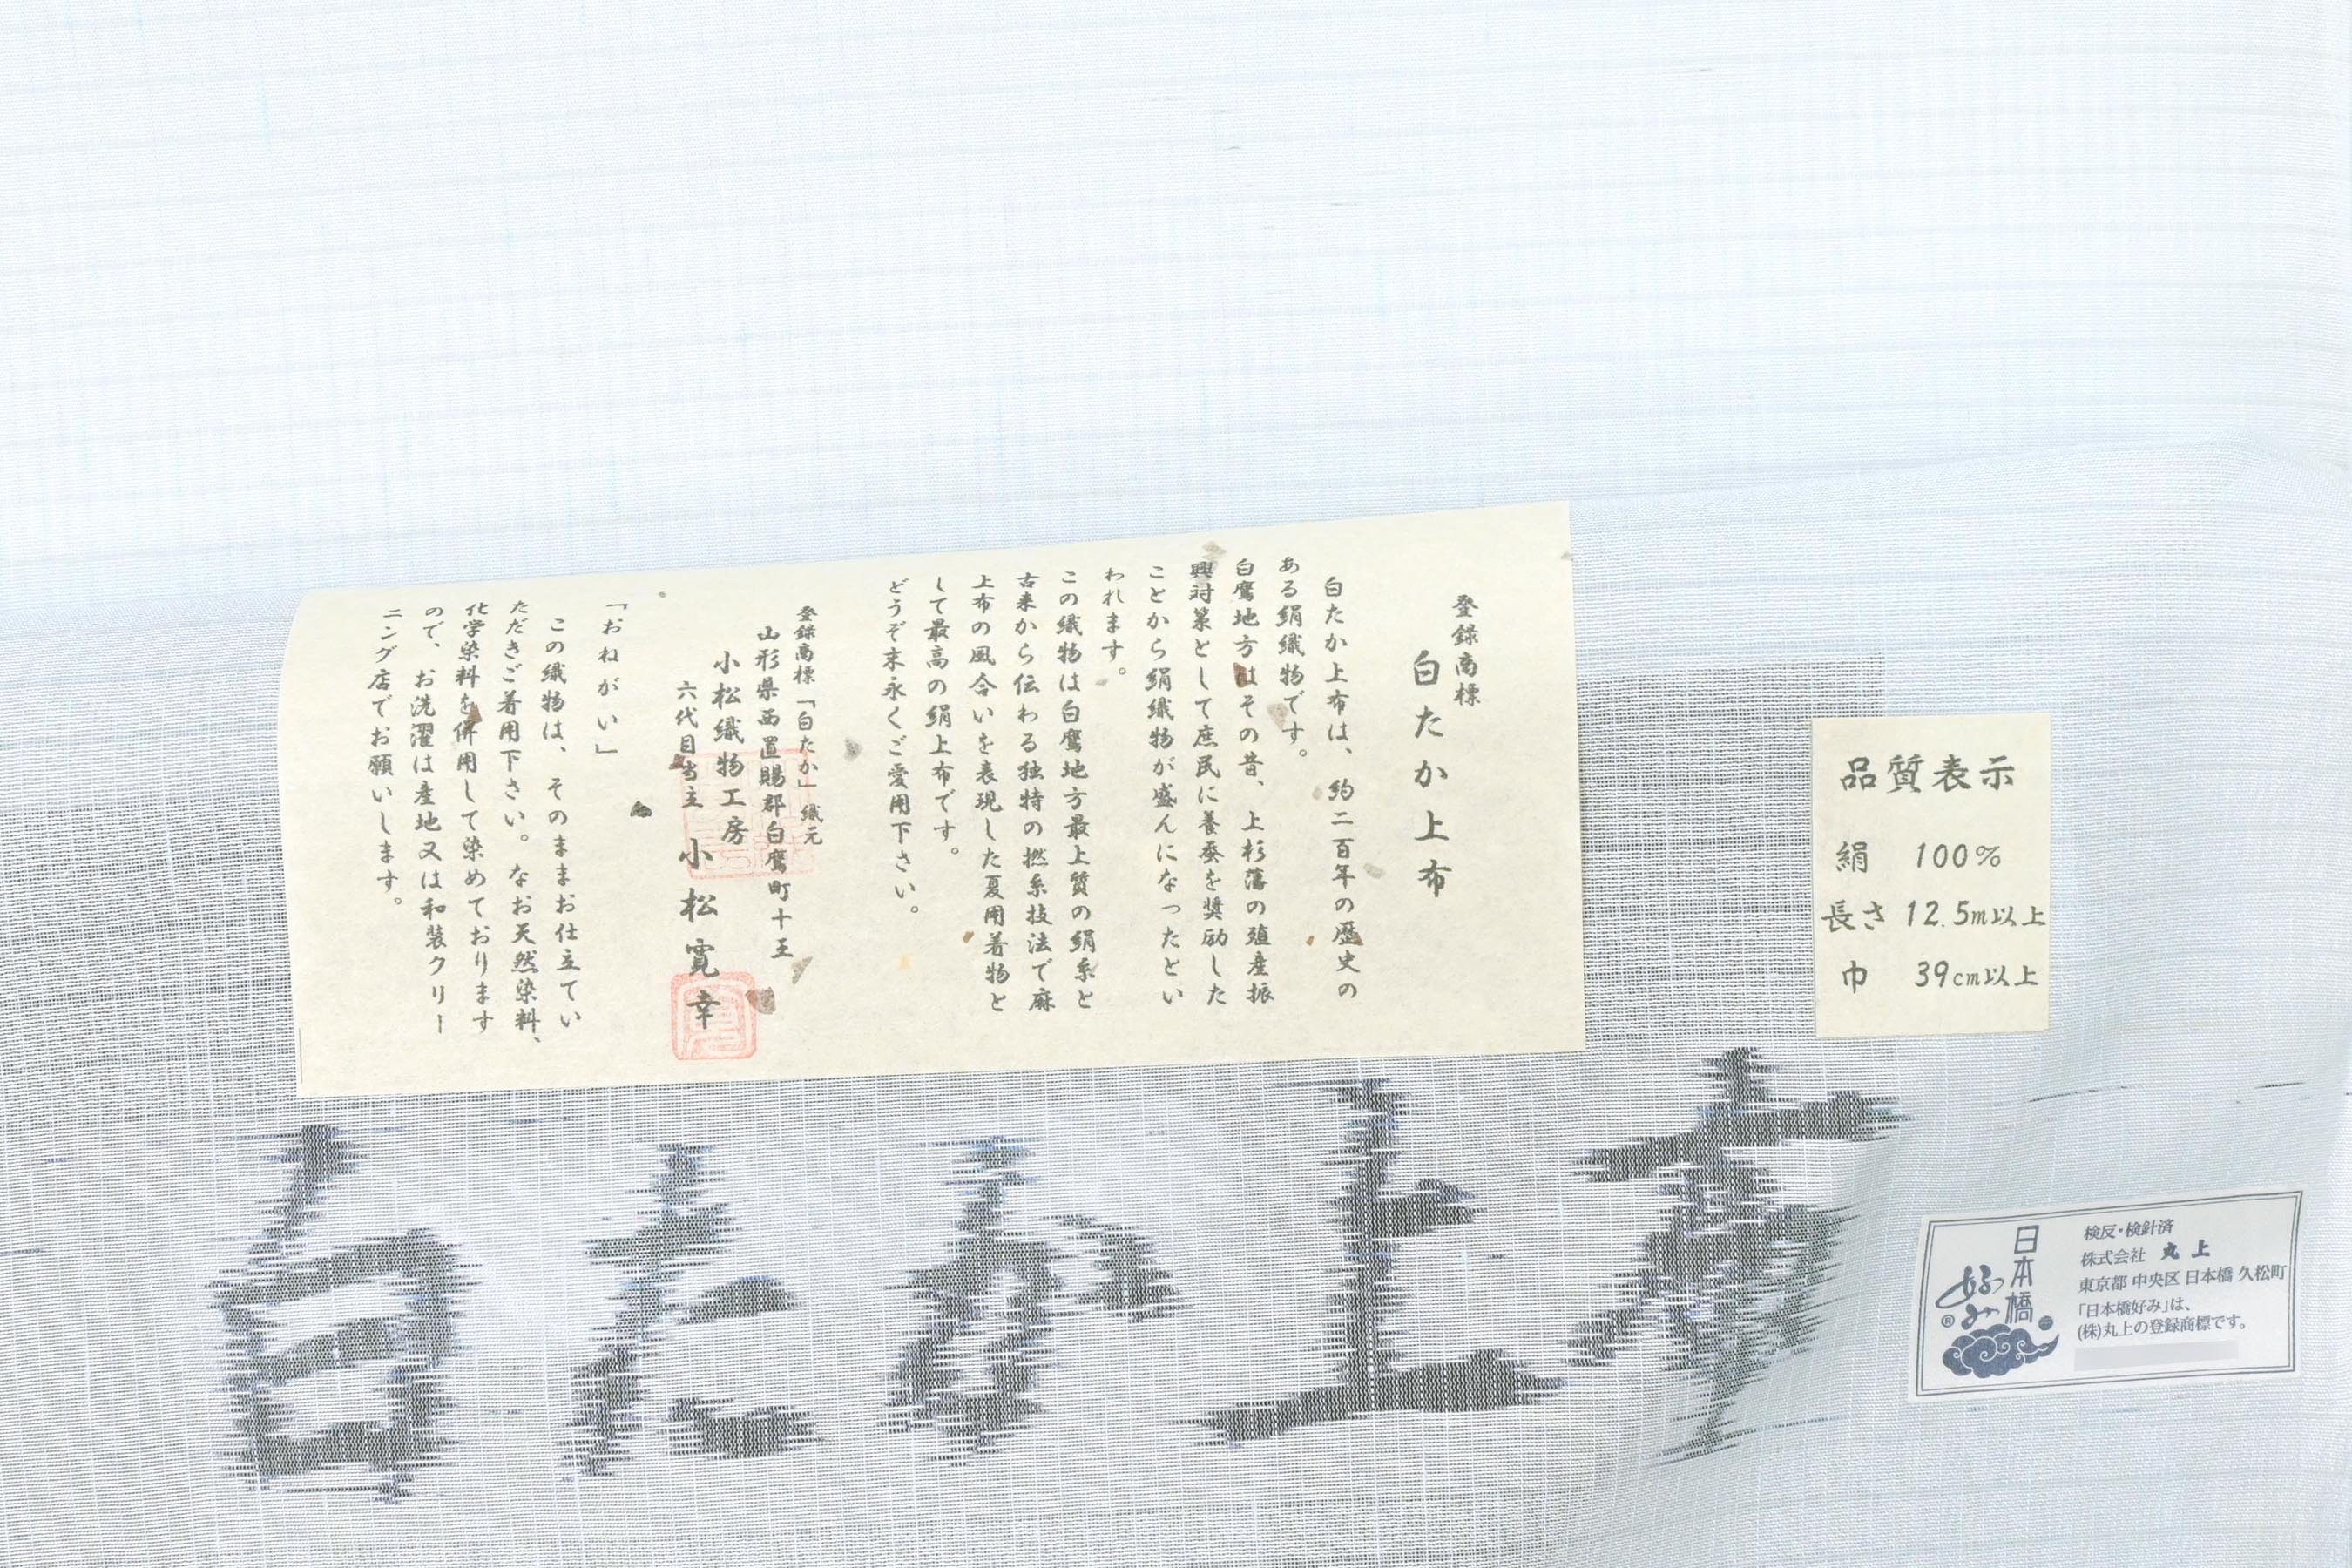 登録商標
白たか上布
白たか上布は、約二百年の歴史の
ある絹織物です。
白鷹地方はその昔、上杉藩の殖産振
興対策として庶民に養蚕を奨励した
ことから絹織物が盛んになったとい
われます。
この織物は白鷹地方最上質の絹糸と
古来から伝わる独特の撚糸技法で麻
上布の風合いを表現した夏用着物と
して最高の絹上布です。
どうぞ末永くご愛用下さい。
登録商標「白たか」織元
山形県西置賜郡白鷹町十王
小松織物工房
六代目当主 小松寛幸
「おねがい」
この織物は、そのままお仕立てい
ただきご着用下さい。なお天然染料、
化学染料を併用して染めております
ので、お洗濯は産地又は和装クリー
ニング店でお願いします。
品質表示
絹 100%
長さ 12.5m以上
巾 39cm以上
白たか上布
日本橋
好み
®
検反・検針済
株式会社 丸上
東京都 中央区 日本橋 久松町
「日本橋好み」は、
(株)丸上の登録商標です。